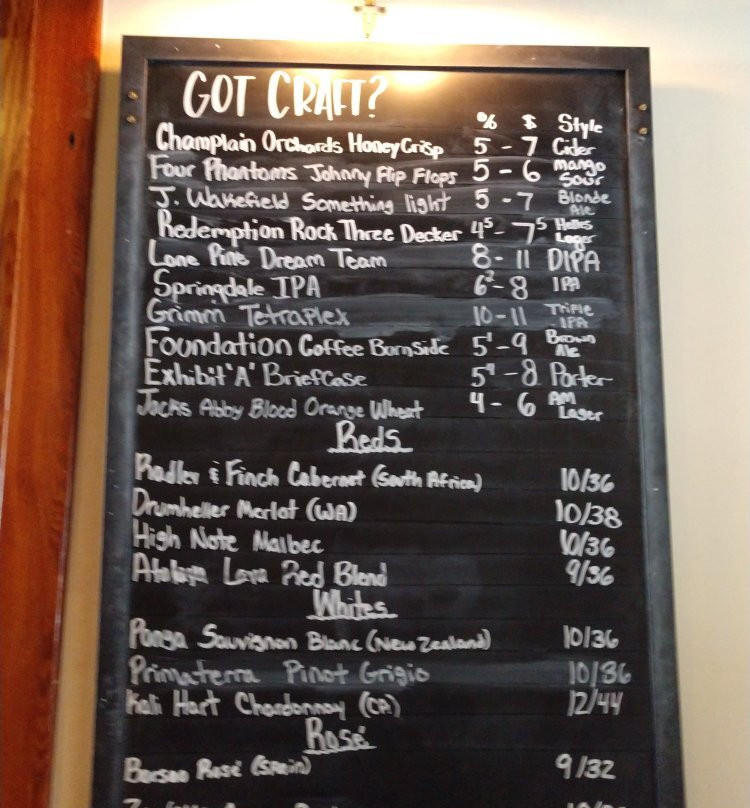 GOT CRAFT?
% $ Style
Champlain Orchards HoneyCrisp 5 - 7 Cider
Four Phantoms Johnny Flip Flops 5 - 6 mango Sour
J. Wakefield Something light 5 - 7 Blonde Ale
Redemption Rock Three Decker 4⁵ - 7⁵ Helles Lager
Lone Pine Dream Team 8 - 11 DIPA
Springdale IPA 6² - 8 IPA
Grimm Tetraplex 10 - 11 Triple IPA
Foundation Coffee BurnSide 5¹ - 9 Brown Ale
Exhibit 'A' BriefCase 5⁹ - 8 Porter
Jacks Abby Blood Orange Wheat 4 - 6 AM Lager
Reds
Radler & Finch Cabernet (South Africa) 10/36
Drumheller Merlot (WA) 10/38
High Note Malbec 10/36
Lava Red Blend 9/36
Whites
Ponga Sauvignon Blanc (New Zealand) 10/36
Primaterra Pinot Grigio 10/36
Kali Hart Chardonnay (CA) 12/44
Rosé
Borsao Rosé (Spain) 9/32